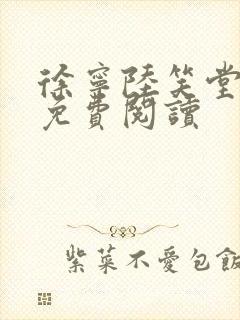 徐寧陸笑堂
免費閱讀
紫菜不愛包飯